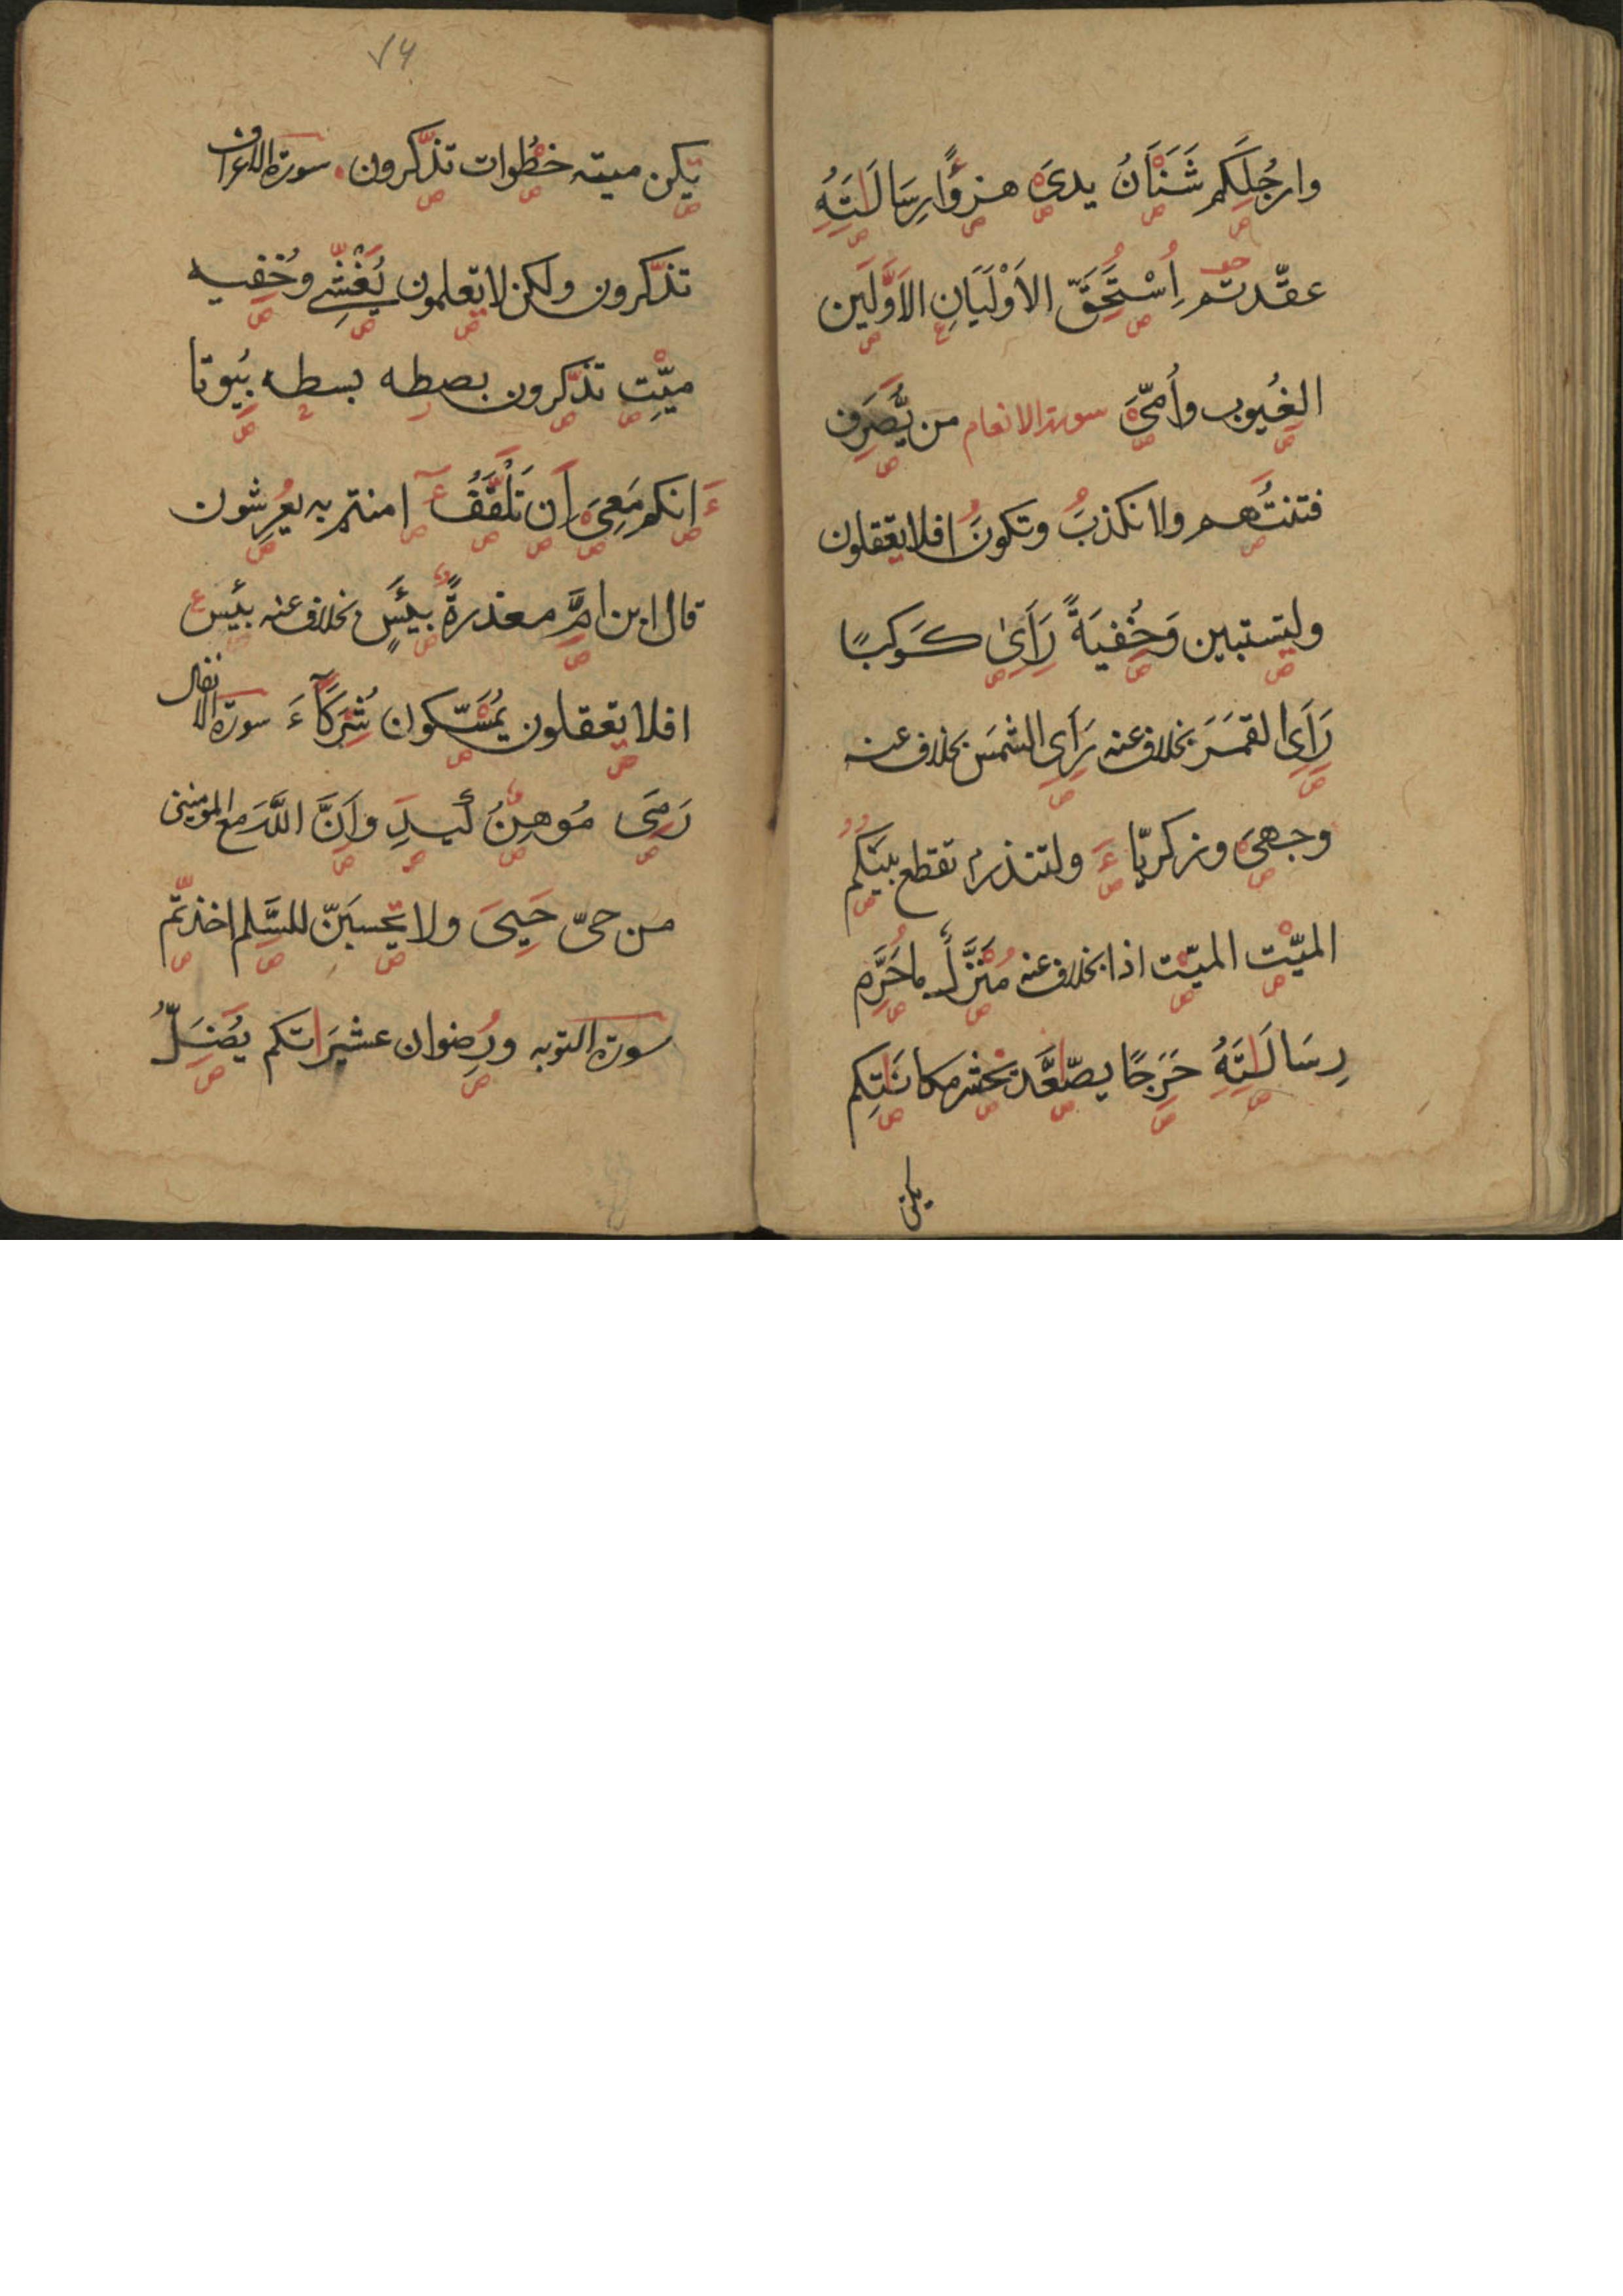 وارجُلِكم شَنَْاٰنُ يدىَ هزوًا رِسَالَتَِهُ
عقّدتم اِسْتُحَِقَّ الاَوْلَيَانِ الاَوَّلَين
الغُيوب واُمّىَ سورة الانعام من يَُّصرَِف
فتنتُهم ولا نكذبَُ وتكونَُ افلا يتعقلون
وليتستبين وَخُِفيَةً رَاَىٰ كَوكبًا
رَاَى القمَرَ بخلاف عنه رَاَى الشمسَ بخلاف عنه
وجهىَ وزكريّاءَ ولتنذر ام تقطع بينَُكم
الميّت الميّت اذا بخلاف عنه مُنَزَّلٌ ما حَُرَِّم
رِسَالَتَِهُ حَرَِجًا يصّاعَّد نحشر مكانَتِكم
يكن
٧٤
يتكن ميته خطُوات تذّكرون . سورة الاعراف
تذّكرون ولكن لا يتعلمون يُغْشِى وخُفِيه
ميّتِ تذّكرون بصطه بسطه بُيوتا
ءَ انكم مَعِىَ اَِن تَلْقَّفُ ءامنتم به يعرُِشون
قال ابن امَِّ معذرةً بَئيسٍ بخلاف عنه بيَئس ع
افلا يتعقلون يمُسّكون شُِرَكَآءَ سورة الانفال
رَمىَ مُوهِنٌ كيدِ وَاَنَّ اللَّهَ مع المومنين
من حىّ حَيِىَ ولا يتحسبَنّ للسَّلم اخذتّم
سورة التوبه ورُِضوان عشيرَاتكم يُضَِلُّ